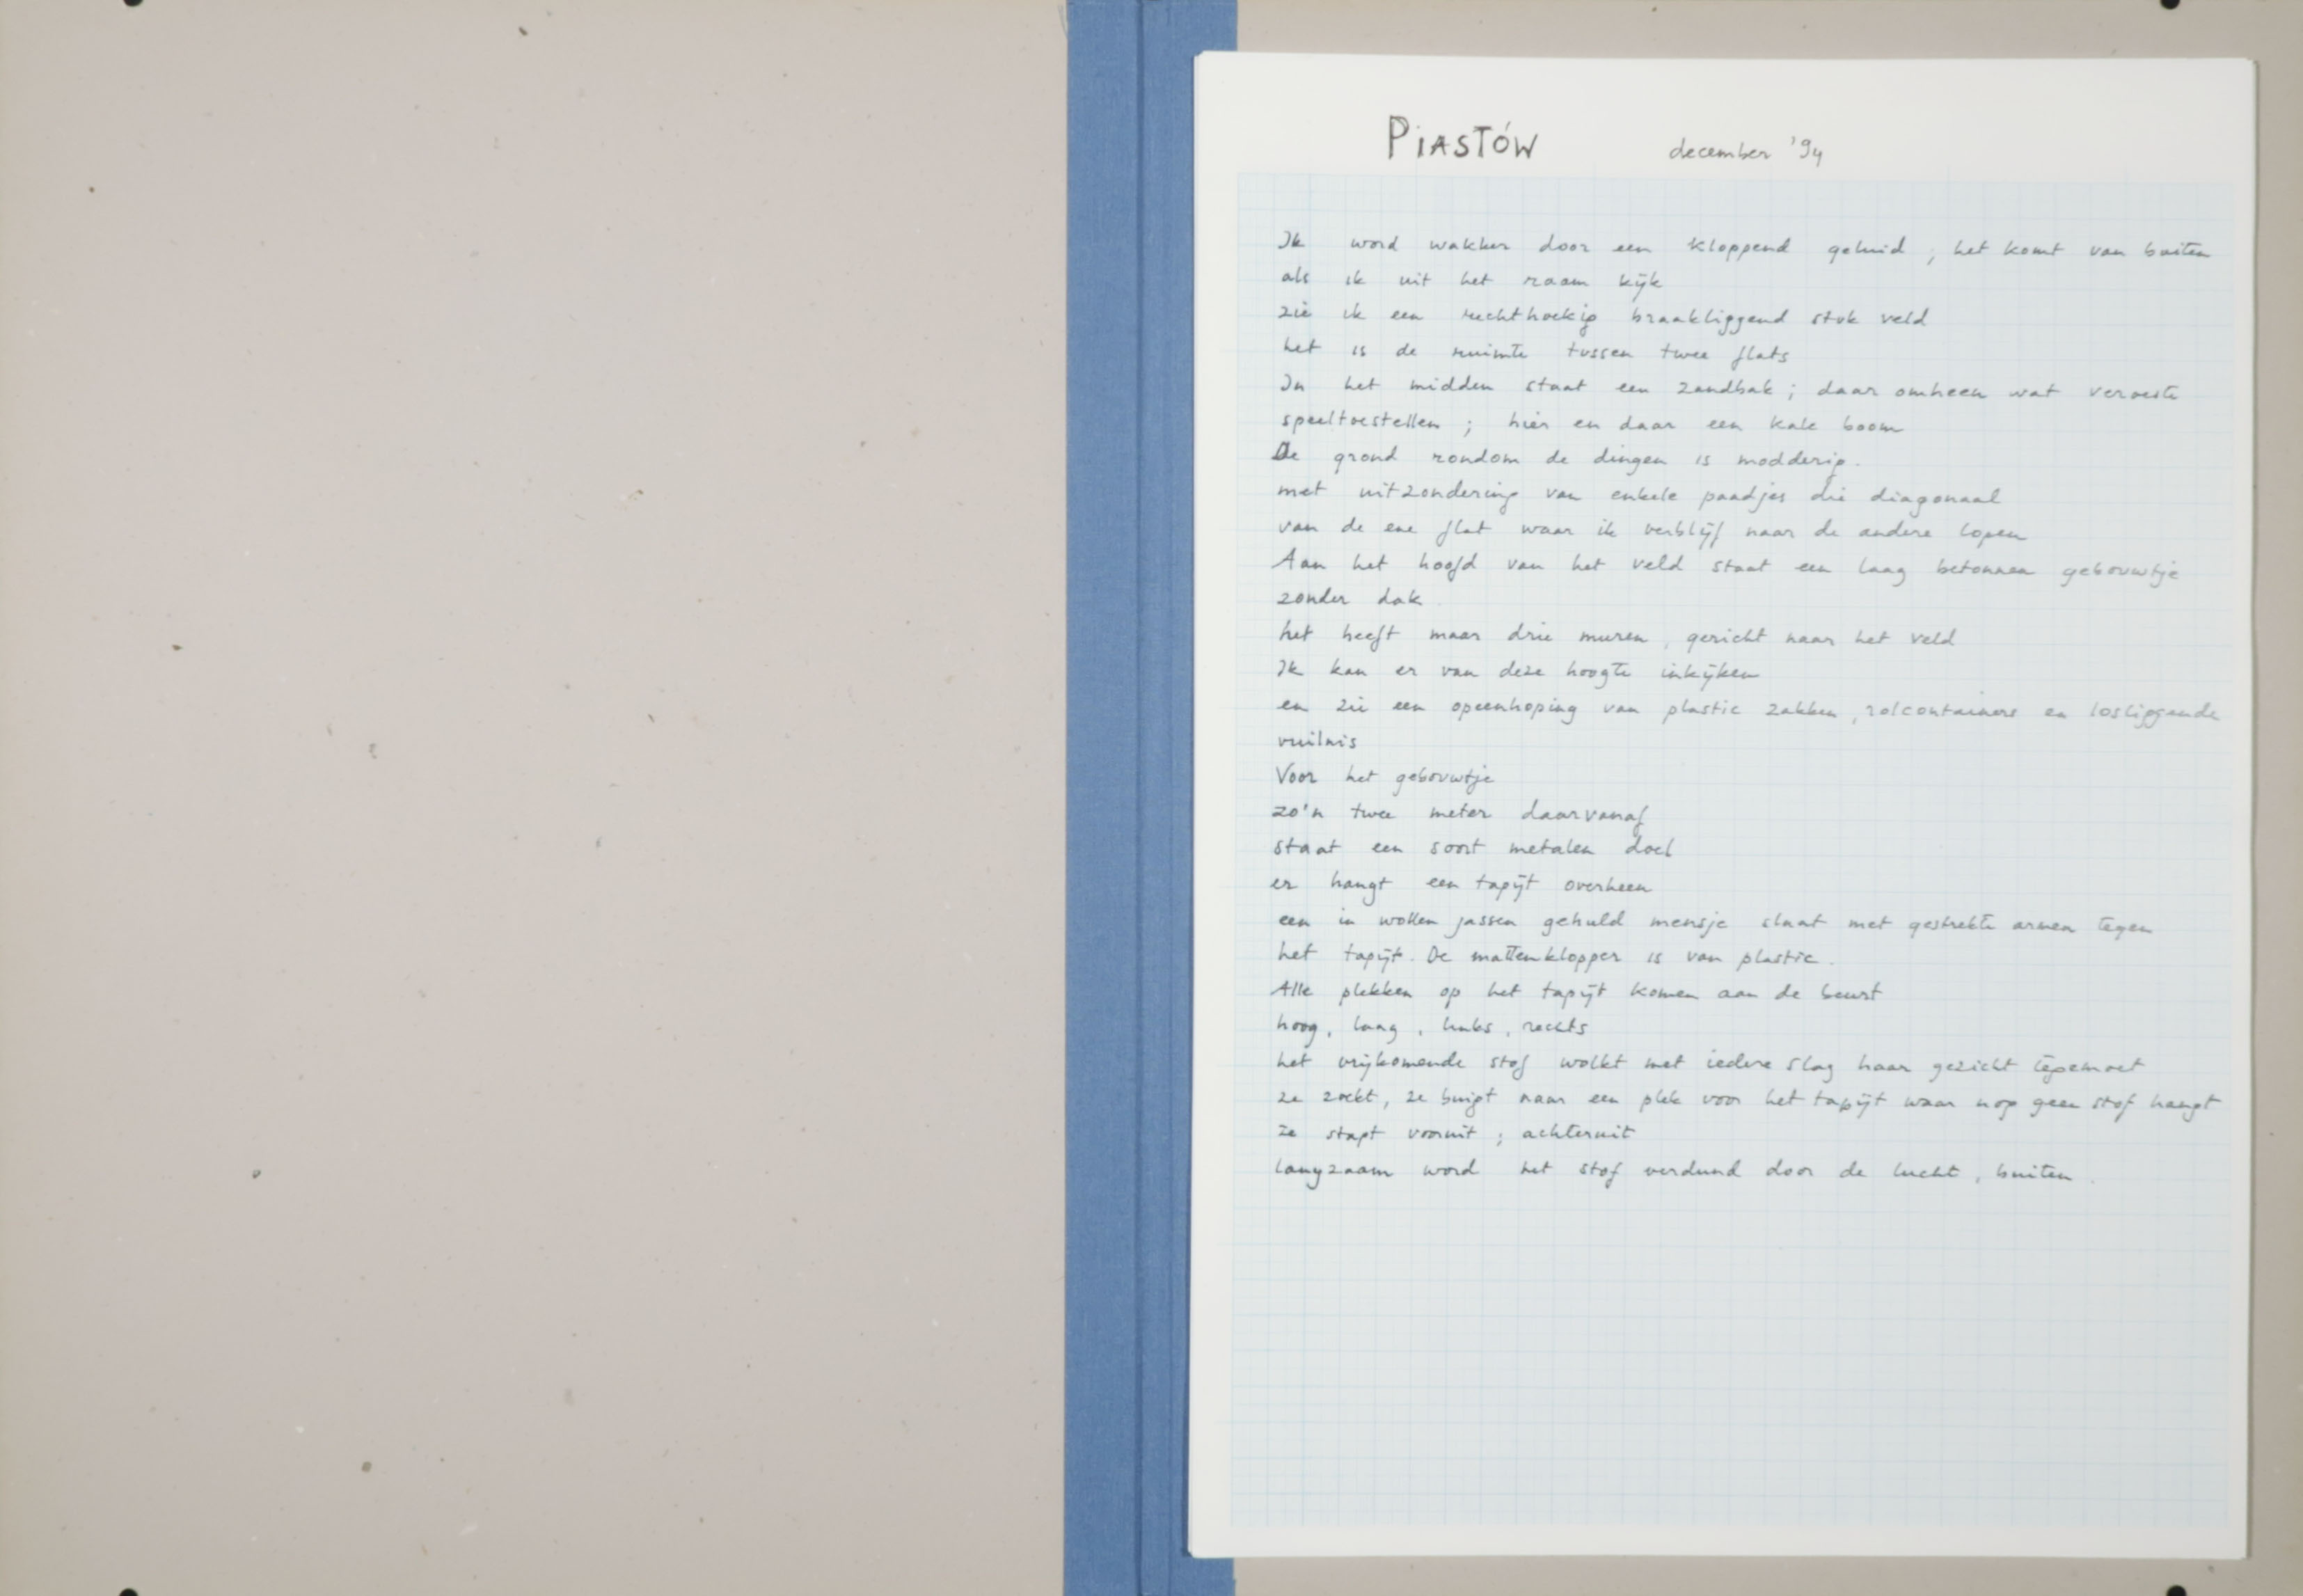 PIASTÓW december '94
Ik word wakker door een kloppend geluid ; het komt van buiten
als ik uit het raam kijk
zie ik een rechthoekig braakliggend stuk veld
het is de ruimte tussen twee flats
In het midden staat een zandbak ; daar omheen wat veroeste
speeltoestellen ; hier en daar een kale boom
De grond rondom de dingen is modderig.
met uitzondering van enkele paadjes die diagonaal
van de ene flat waar ik verblijf naar de andere lopen
Aan het hoofd van het veld staat een laag betonnen gebouwtje
zonder dak
het heeft maar drie muren , gericht naar het veld
Ik kan er van deze hoogte inkijken
en zie een opeenhoping van plastic zakken , rolcontainers en losliggende
vuilnis
Voor het gebouwtje
zo'n twee meter daarvanaf
staat een soort metalen doel
er hangt een tapijt overheen
een in wollen jassen gehuld mensje slaat met gestrekte armen tegen
het tapijt. De mattenklopper is van plastic.
Alle plekken op het tapijt komen aan de beurt
hoog, laag , links , rechts
het vrijkomende stof wolkt met iedere slag haar gezicht tegemoet
ze zoekt, ze buigt naar een plek voor het tapijt waar nog geen stof hangt
ze stapt vooruit ; achteruit
langzaam word het stof verdund door de lucht , buiten .